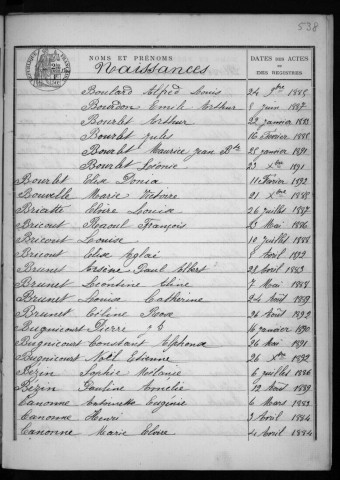 538
NOMS ET PRÉNOMS
DATES DES ACTES
OU
DES REGISTRES
Naissances
Boulard Alfred Louis 24 9bre 1885
Bourdon Emile Arthur 8 Juin 1887
Bourlet Arthur 22 Janvier 1888
Bourlet Jules 16 Février 1888
Bourlet Maurice Jean Bte 25 Janvier 1891
Bourlet Léonie 23 Xbre 1891
Bourlet Elisa Donia 11 Février 1892
Bouvelle Marie Victoire 21 Xbre 1888
Bricotte Louisa 26 Juillet 1887
Bricout Raoul François 23 Mai 1886
Bricout Louise 10 Juillet 1888
Bricout Elisa Aglaé 8 Avril 1892
Brunet Arsène Paul Albert 28 Avril 1883
Brunet Léontine 7 Mai 1888
Brunet Louisa Catherine 24 Août 1889
Brunet Céline Rosa 26 Août 1892
Bugnicourt Pierre 16 Janvier 1890
Bugnicourt Constant Alphonse 26 Mai 1891
Bugnicourt Noël Etienne 26 Xbre 1892
Bézin Sophie Mélanie 6 Juillet 1886
Bézin Pauline Amélie 12 Août 1889
Canonne Antoinette Eugénie 6 Mars 1883
Canonne Henri 3 Avril 1884
Canonne Marie Elvire 4 Avril 1884